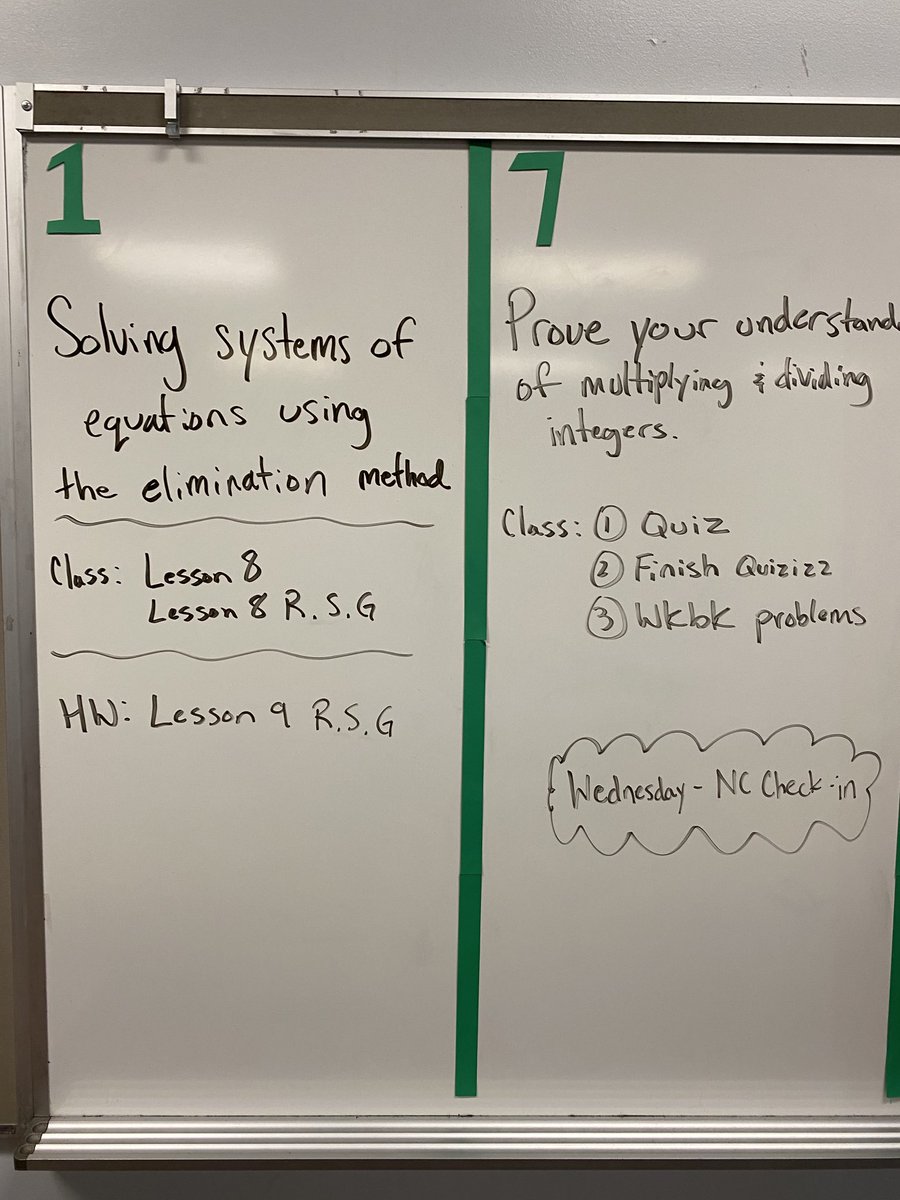 1
Solving systems of
equations using
the elimination method
Class: Lesson 8
Lesson 8 R.S.G
HW: Lesson 9 R.S.G
7
Prove your understand
of multiplying & dividing
integers.
Class: ① Quiz
② Finish Quizizz
③ Wkbk problems
Wednesday - NC Check-in